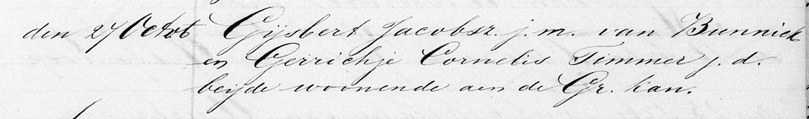 den 27 Octob Gijsbert Jacobsz. j. m. van Bunnick
en Gerrichje Cornelis Timmer j. d.
beijde woonende aen de Gr. kan.